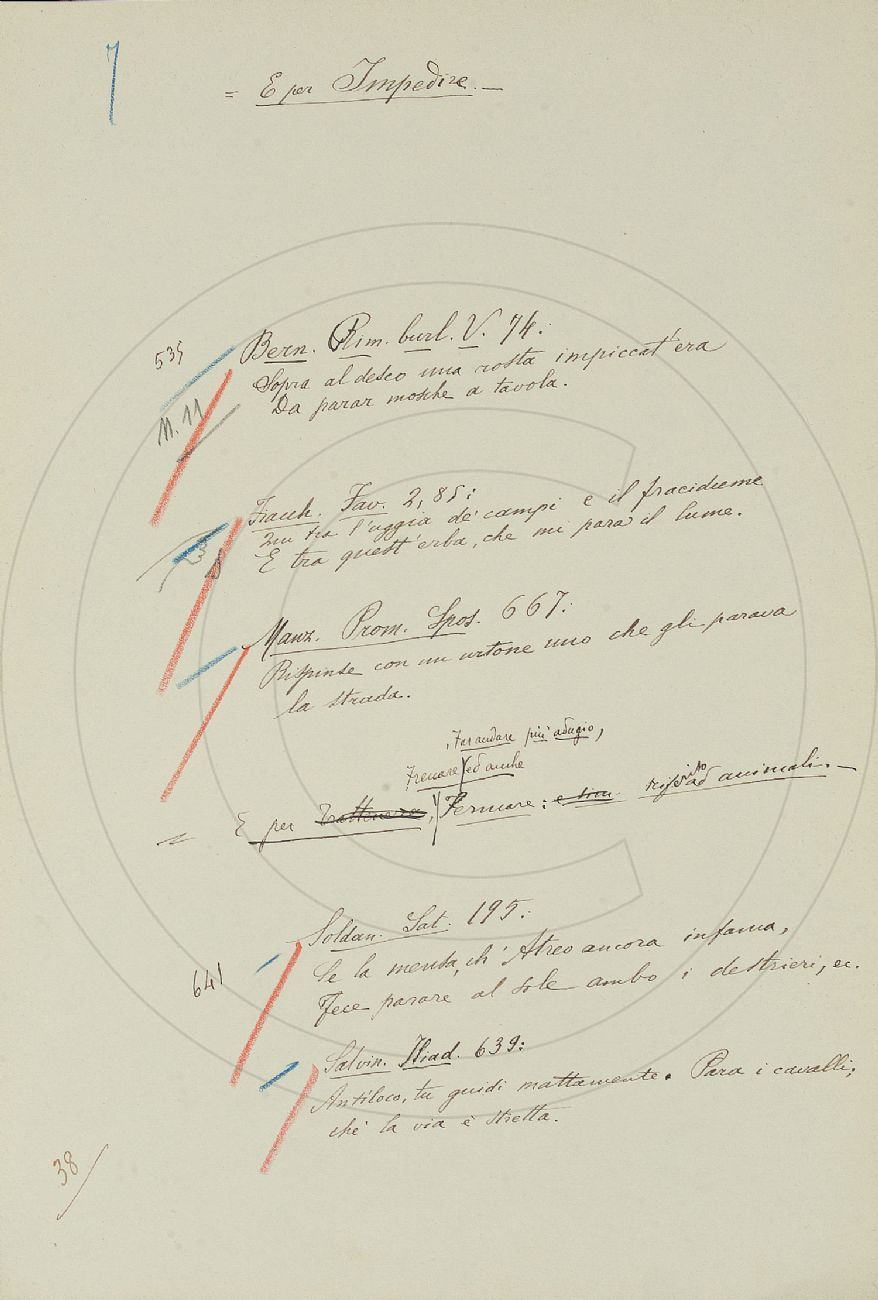 7
= E per Impedire. —
535
Bern. Rim. burl. V. 74:
Sopra al desco una rosta impiccat'era
Da parar mosche a tavola.
N. 11
Fiacch. Fav. 2, 85:
tra l'uggia de' campi e il fracidume
E tra quest'erba, che mi para il lume.
Manz. Prom. Spos. 667:
Rispinse con un urtone uno che gli parava
la strada.
, Far andare più adagio,
Frenare ed anche
= E per Trattenere, Fermare: rifer.to ad animali. —
641
Soldan. Sat. 195:
Se la mensa, ch' Atreo ancora infama,
Fece parare al sole ambo i destrieri, ec.
Salvin. Iliad. 639:
Antiloco, tu guidi mattamente. Para i cavalli;
chè la via è stretta.
38